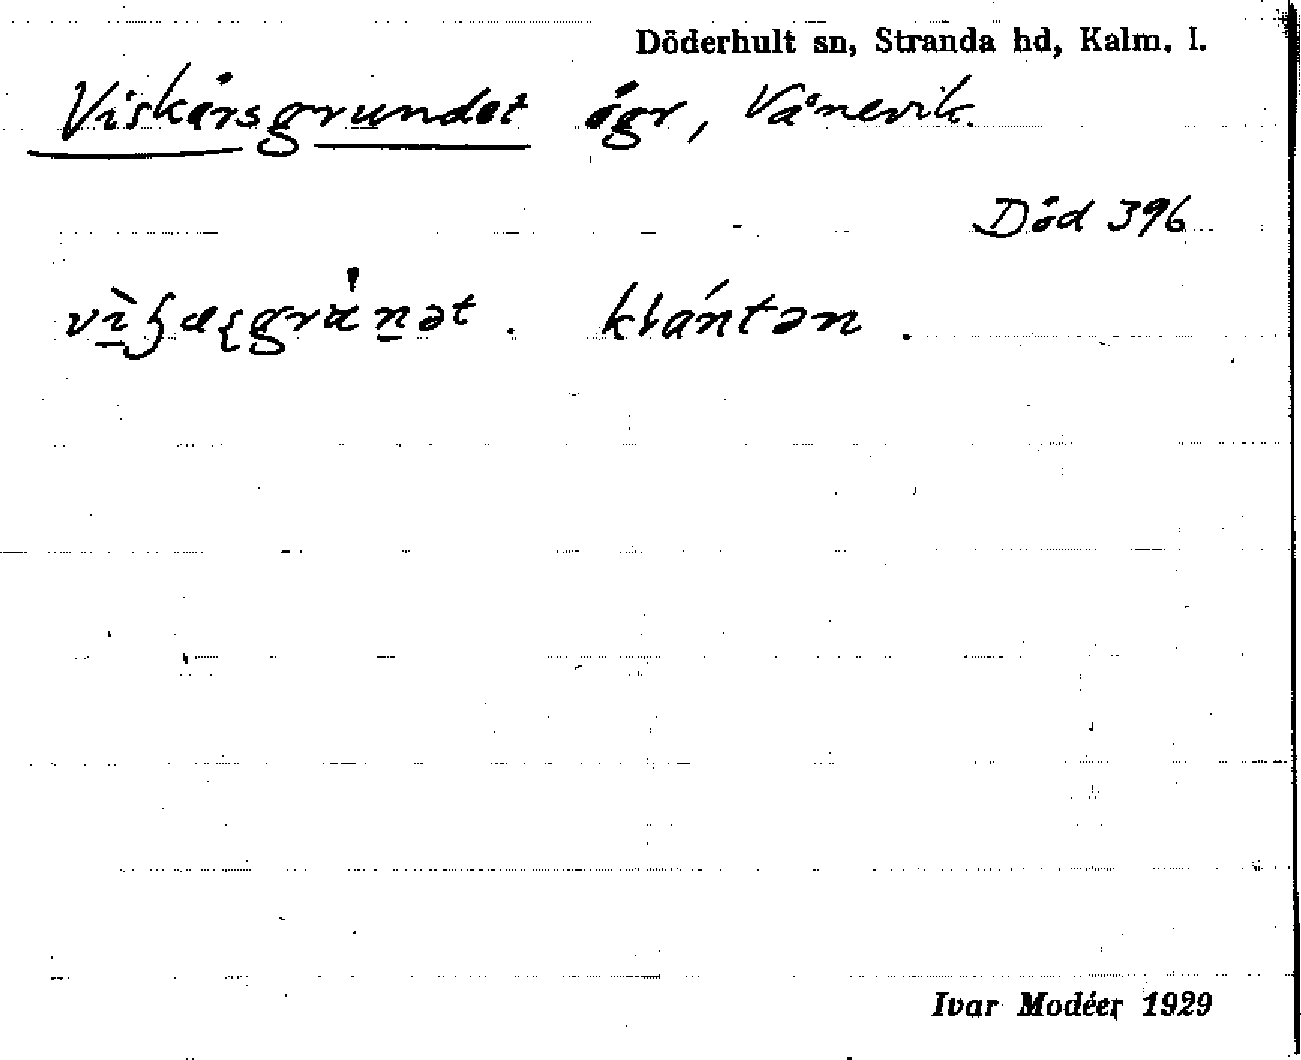 Döderhult sn, Stranda hd, Kalm. l.
Viskärsgrundet ögr, Vånevik.
Död 396
klántən .
Ivar Modéer 1929